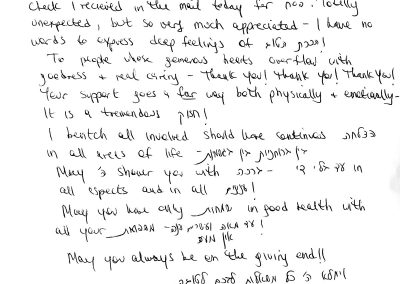 check I recieved in the mail today for noo. Totally
unexpected, but so very much appreciated - I have no
words to express deep feelings of הכרת הטוב!
To people whose generous hearts overflow with
goodness & real caring - Thank you! Thank you! Thank You!
Your support goes a far way both physically & emotionally-
It is a tremendous חיזוק!
I bentch all involved should have continuous הצלחה
in all areas of life - בין ברוחניות בין בגשמיות
May ה' shower you with ברכה - עד בלי די in
all aspects and in all
May you have only שמחות in good health with
all your משפחות
May you always be on the giving end!!
ימלא ה' כל משאלות לבכם לטובה